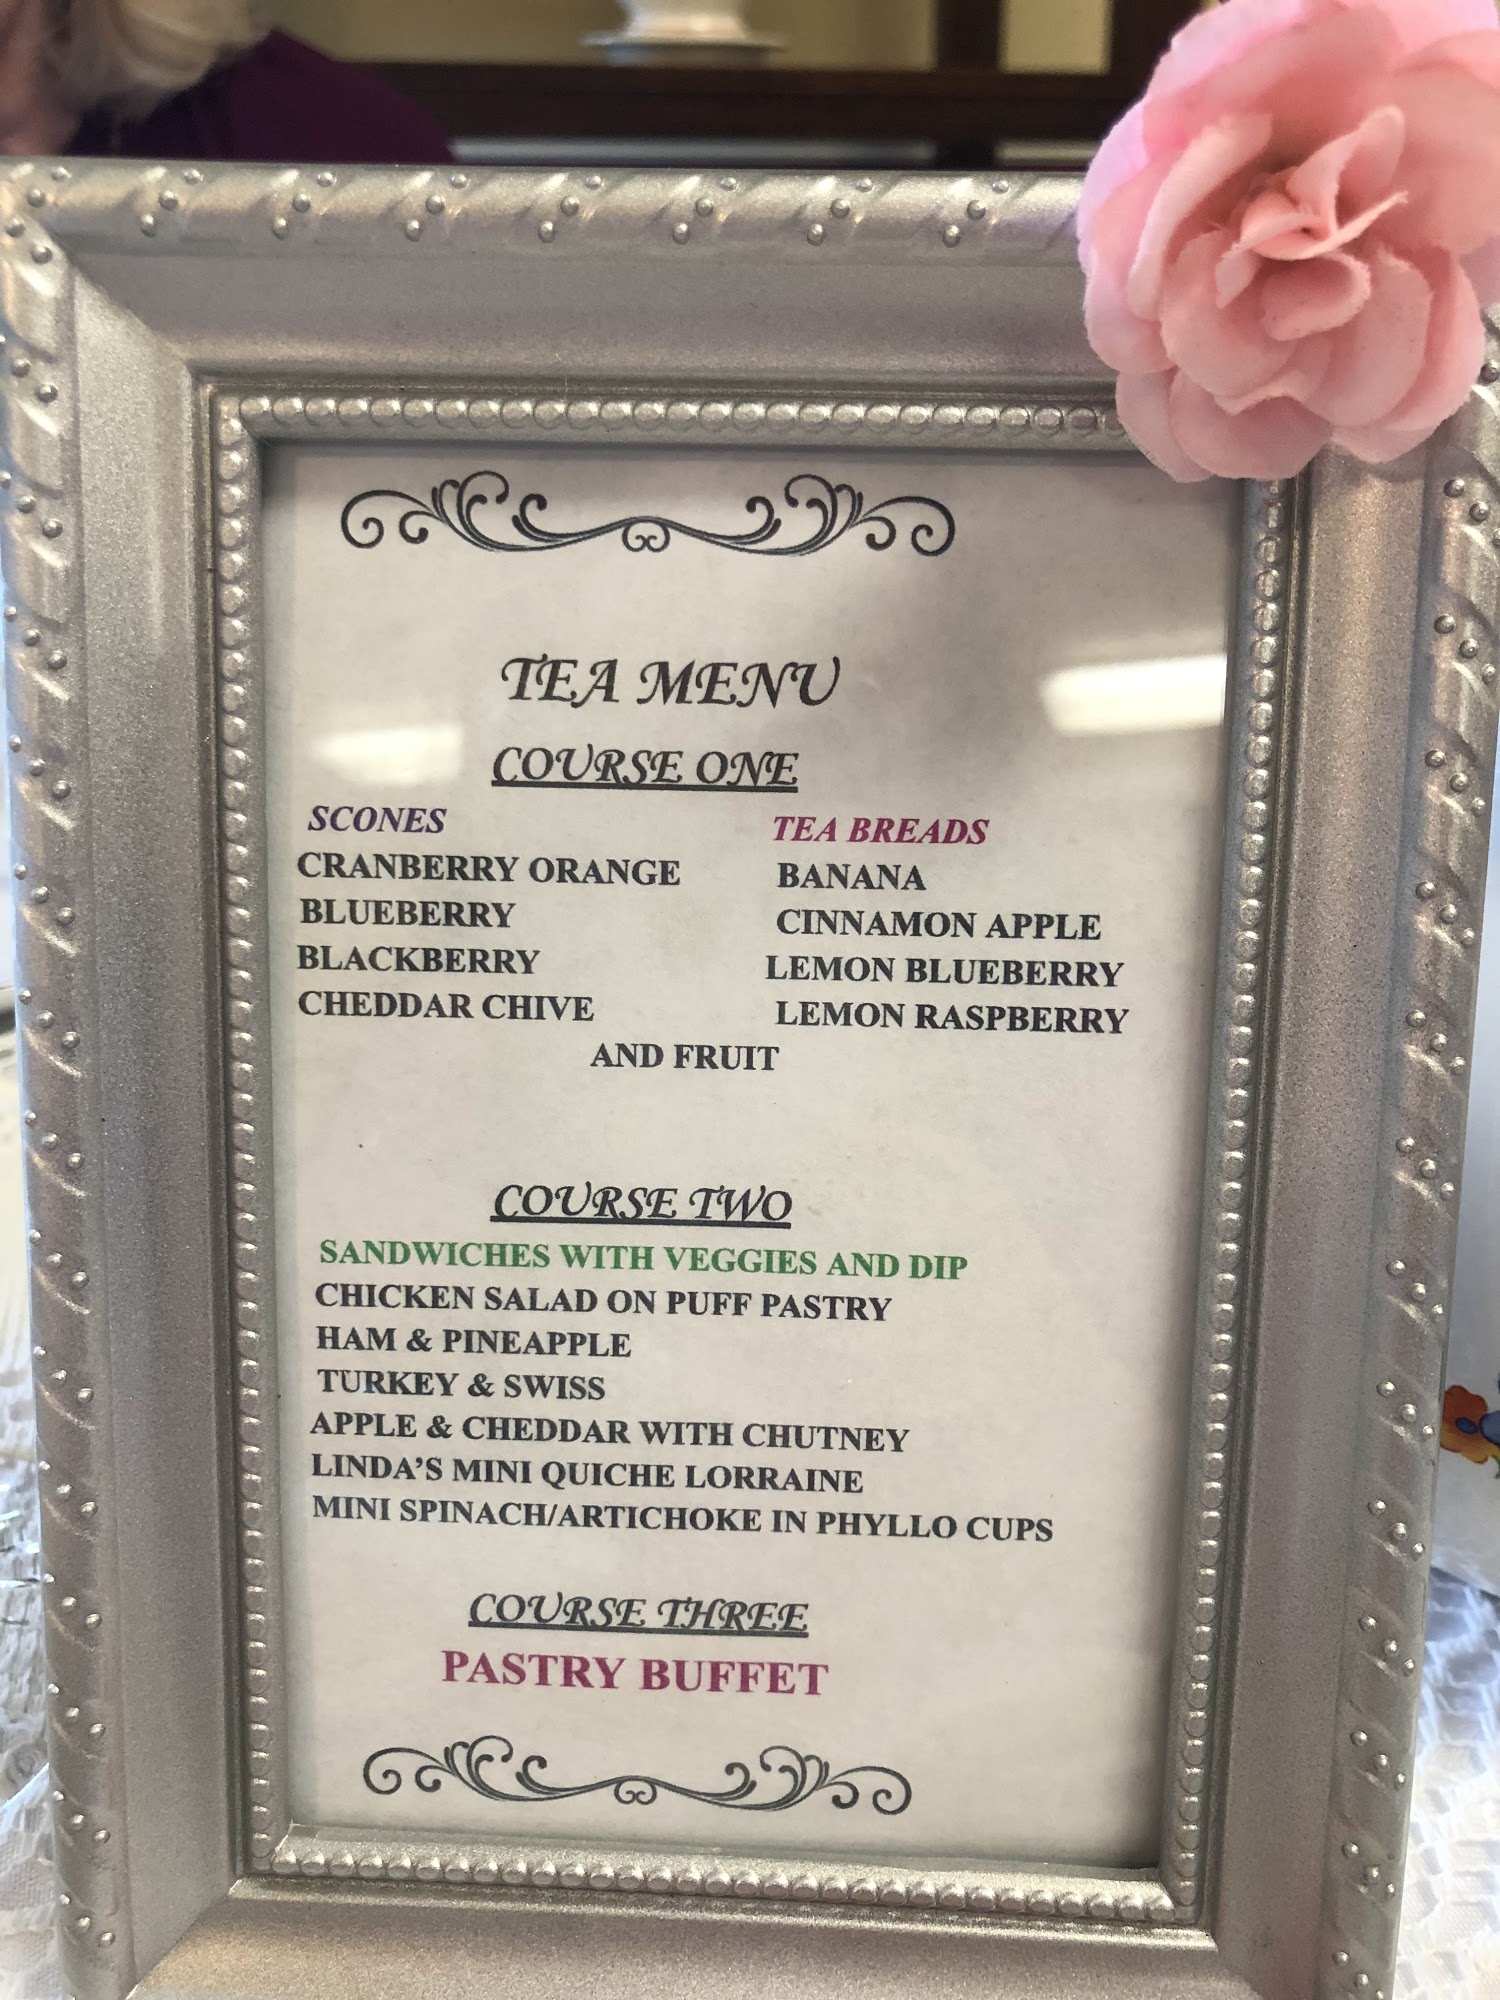 TEA MENU
COURSE ONE
SCONES
CRANBERRY ORANGE
BLUEBERRY
BLACKBERRY
CHEDDAR CHIVE
TEA BREADS
BANANA
CINNAMON APPLE
LEMON BLUEBERRY
LEMON RASPBERRY
AND FRUIT
COURSE TWO
SANDWICHES WITH VEGGIES AND DIP
CHICKEN SALAD ON PUFF PASTRY
HAM & PINEAPPLE
TURKEY & SWISS
APPLE & CHEDDAR WITH CHUTNEY
LINDA'S MINI QUICHE LORRAINE
MINI SPINACH/ARTICHOKE IN PHYLLO CUPS
COURSE THREE
PASTRY BUFFET